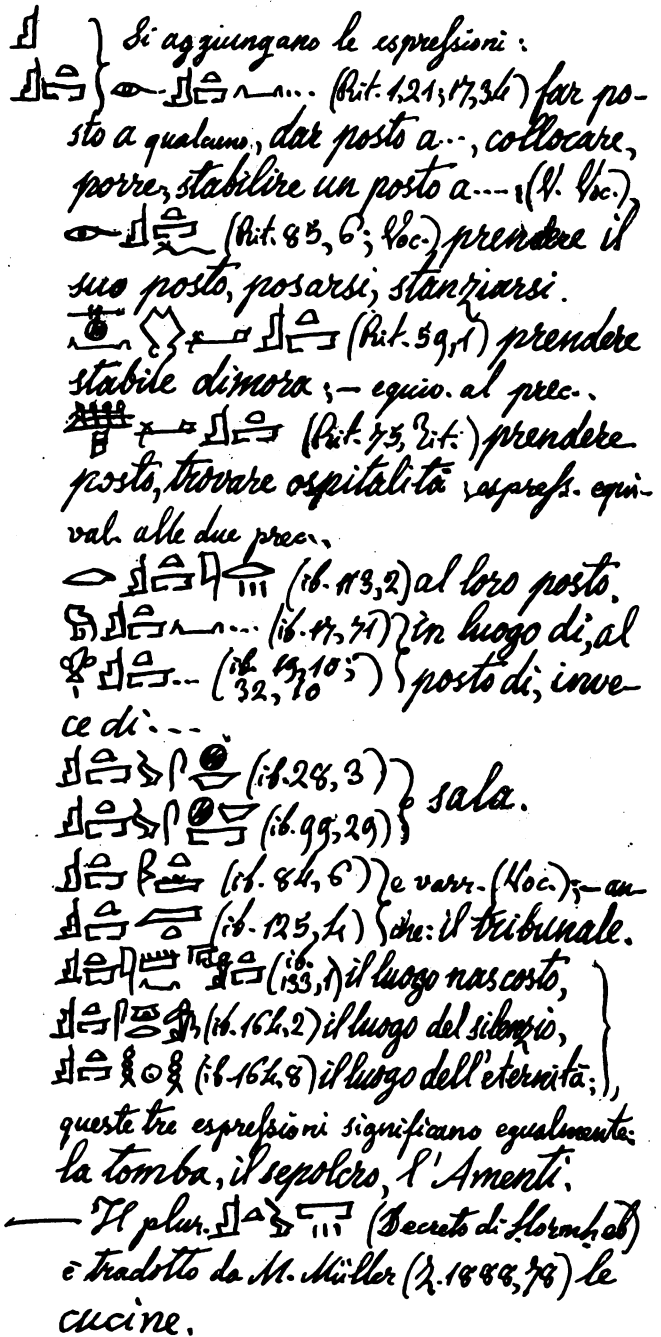 𓊨 } Si aggiungano le espressioni:
𓊨𓏏𓉐 } 𓁹 𓊨𓏏𓉐 𓈖... (Rit. 1,21; 17,34) far po-
sto a qualcuno, dar posto a..., collocare,
porre, stabilire un posto a....; (V. Voc.),
𓁹 𓊨𓏏𓉐 𓆑 (Rit. 85, 6; Voc.) prendere il
suo posto, posarsi, stanziarsi.
(Rit. 59,1) prendere
stabile dimora; – equiv. al prec..
𓊨𓏏𓉐 (Rit. 75, tit.) prendere
posto, trovare ospitalità; espress. equi-
val. alle due prec..
𓂋 𓊨𓏏𓉐 𓊃𓈖𓏥 (ib. 113,2) al loro posto.
𓅓 𓊨𓏏𓉐 𓈖... (ib. 17, 71) } in luogo di, al
𓁷 𓊨𓏏𓉐... (ib. 19,10; 32, 10) } posto di, inve-
ce di....
𓊨𓏏𓉐 𓅱𓋴𓐍 (ib. 28, 3) }
𓊨𓏏𓉐 𓅱𓋴𓐍 (ib. 99, 29) } sala.
𓊨𓏏𓉐 (ib. 84, 6) } e varr. (Voc.); – an-
𓊨𓏏𓉐 (ib. 125, 4) } che: il tribunale.
𓊨𓏏𓉐 𓊨𓏏𓉐 (ib. 133,1) il luogo nascosto,
𓊨𓏏𓉐 (ib. 164,2) il luogo del silenzio,
𓊨𓏏𓉐 𓎛𓇳𓎛 (ib. 164,8) il luogo dell'eternità;
queste tre espressioni significano egualmente:
la tomba, il sepolcro, l'Amenti.
— Il plur. 𓊨𓏏𓅱𓉐𓏥 (Decreto di Hormheb)
è tradotto da M. Müller (Z. 1888, 78) le
cucine.